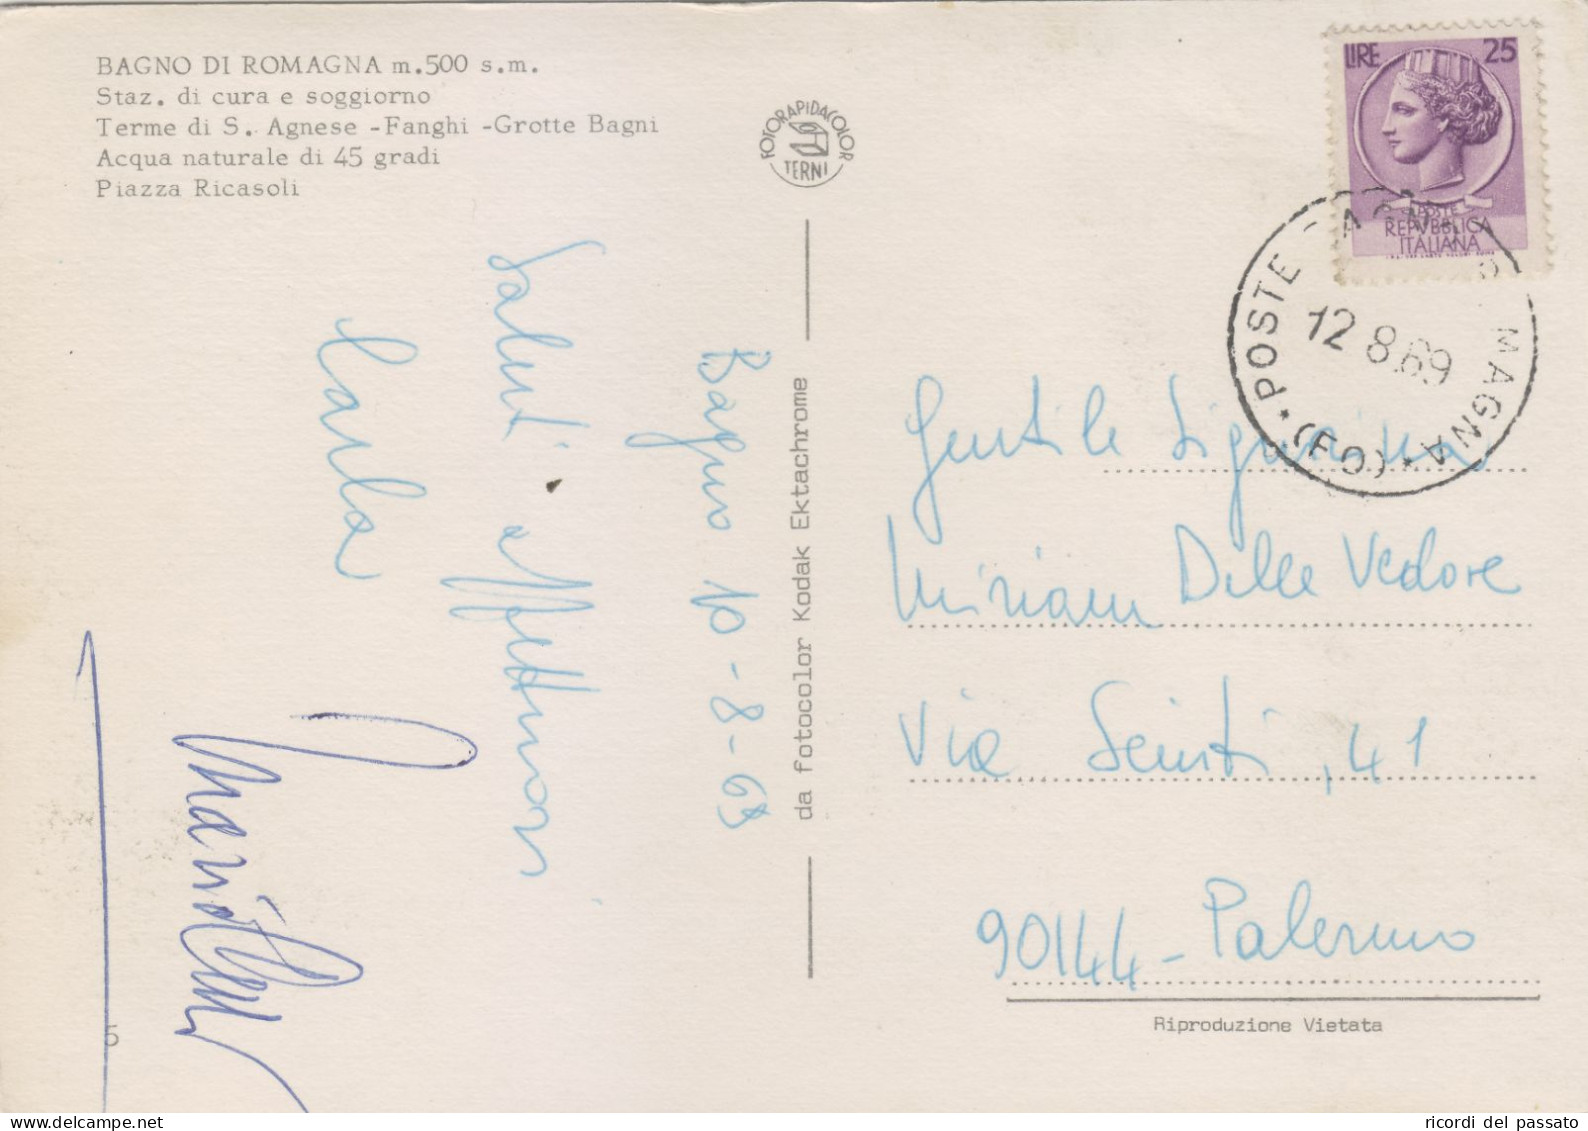 BAGNO DI ROMAGNA m.500 s.m.
Staz. di cura e soggiorno
Terme di S. Agnese -Fanghi -Grotte Bagni
Acqua naturale di 45 gradi
Piazza Ricasoli
FOTORAPIDACOLOR
TERNI
LIRE 25
POSTE
REPVBBLICA
ITALIANA
POSTE MAGNA
(FO)
12 8.69
Bagno 10-8-69
Saluti affettuosi
Carla
da fotocolor Kodak Ektachrome
Gentile Signorina
Miriam Delle Vedove
Via Sciuti, 41
90144 - Palermo
Riproduzione Vietata
5
ricordi del passato